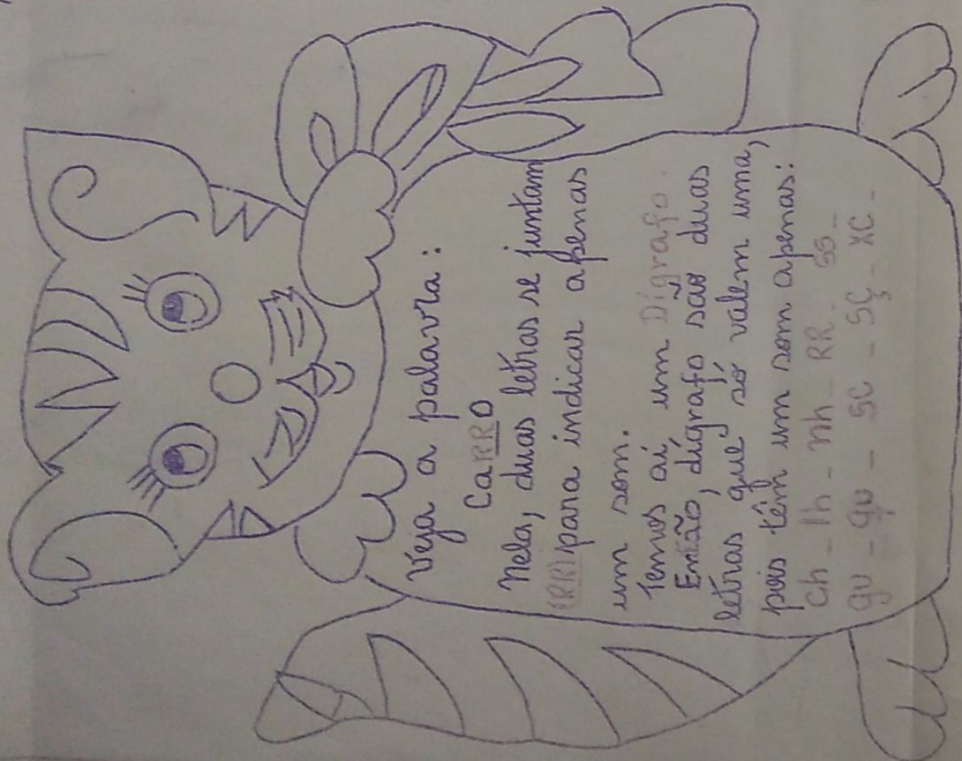 Veja a palavra:
CaRRO
Nela, duas letras se juntam
(RR) para indicar apenas
um som.
Temos aí um Dígrafo.
Então, dígrafo são duas
letras que só valem uma,
pois têm um som apenas:
Ch - lh - nh - RR - SS -
gu - qu - SC - SÇ - XC -